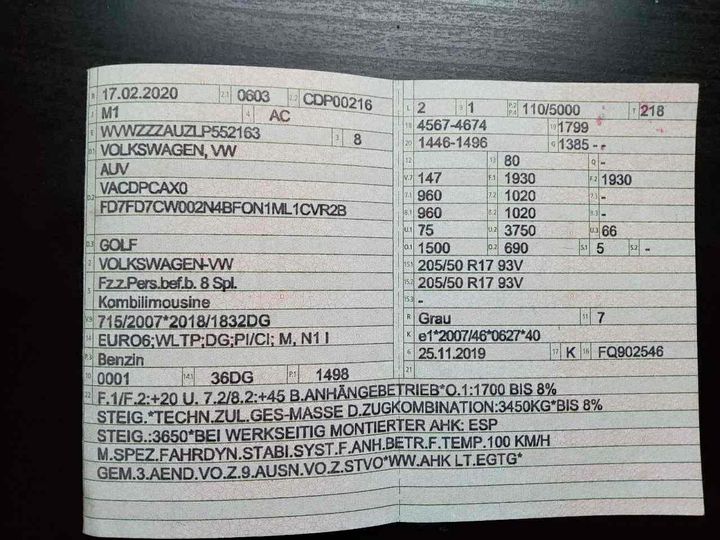 B 17.02.2020 2.1 0603 2.2 CDP00216
J M1 4 AC
E WVWZZZAUZLP552163 3 8
D.1 VOLKSWAGEN, VW
AUV
D.2 VACDPCAX0
FD7FD7CW002N4BFON1ML1CVR2B
D.3 GOLF
2 VOLKSWAGEN-VW
5 Fz.z.Pers.bef.b. 8 Spl.
Kombilimousine
V.9 715/2007*2018/1832DG
14 EURO6;WLTP;DG;PI/CI; M, N1 I
P.3 Benzin
10 0001 14.1 36DG P.1 1498
L 2 9 1 P.2 P.4 110/5000 T 218
18 4567-4674 19 1799
20 1446-1496 G 1385 - -
12 13 80 Q -
V.7 147 F.1 1930 F.2 1930
7.1 960 7.2 1020 7.3 -
8.1 960 8.2 1020 8.3 -
U.1 75 U.2 3750 U.3 66
O.1 1500 O.2 690 S.1 5 S.2 -
15.1 205/50 R17 93V
15.2 205/50 R17 93V
15.3 -
R Grau 11 7
K e1*2007/46*0627*40
6 25.11.2019 17 K 16 FQ902546
21
22 F.1/F.2:+20 U. 7.2/8.2:+45 B.ANHÄNGEBETRIEB*O.1:1700 BIS 8%
STEIG.*TECHN.ZUL.GES-MASSE D.ZUGKOMBINATION:3450KG*BIS 8%
STEIG.:3650*BEI WERKSEITIG MONTIERTER AHK: ESP
M.SPEZ.FAHRDYN.STABI.SYST.F.ANH.BETR.F.TEMP.100 KM/H
GEM.3.AEND.VO.Z.9.AUSN.VO.Z.STVO*WW.AHK LT.EGTG*